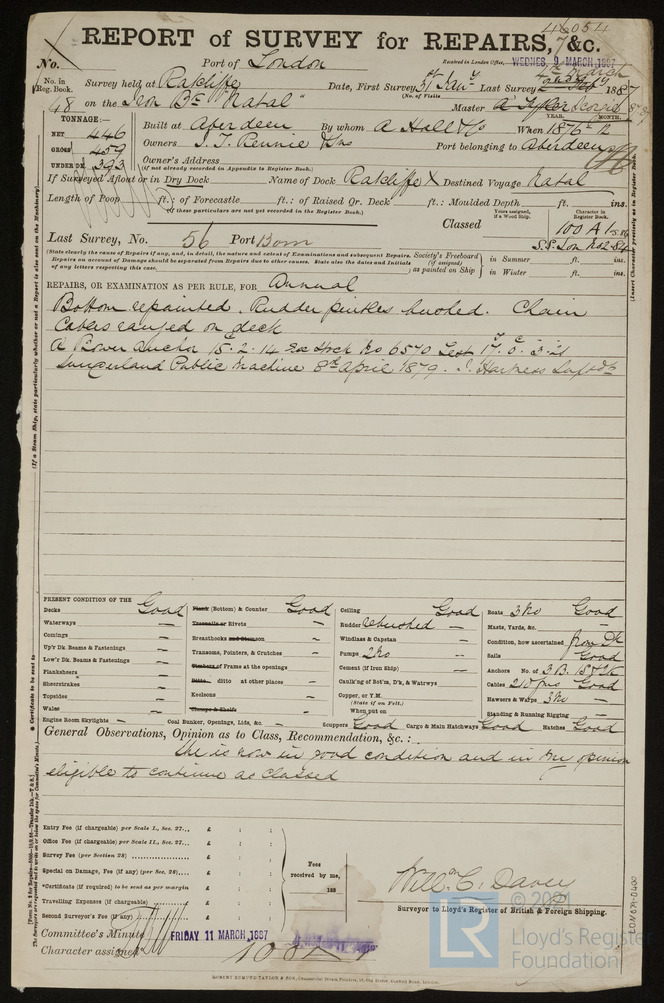 46054
REPORT of SURVEY for REPAIRS, &c.
No. Port of London Received in London Office, WEDNES. 9 MARCH, 1887
No. in Reg. Book. Survey held at Ratcliffe Date, First Survey 31st Jany Last Survey 1887
(No. of Visits
48 on the Iron Bk "Natal" Master
TONNAGE:— YEAR. MONTH.
NET 446 Built at Aberdeen By whom A Hall & Co When 1876 12
GROSS 459 Owners J. T. Rennie & Sns Port belonging to Aberdeen
UNDER DK 393 Owner's Address
(if not already recorded in Appendix to Register Book.)
If Surveyed Afloat or in Dry Dock Name of Dock Ratcliffe X Destined Voyage Natal
Length of Poop ft.: of Forecastle ft.: of Raised Qr. Deck ft.: Moulded Depth ft. ins.
(If these particulars are not yet recorded in the Register Book.)
Years assigned, if a Wood Ship. Character in Register Book.
Classed 100 A1
Last Survey, No. 56 Port S.S. Lon No2-84
(State clearly the cause of Repairs if any, and, in detail, the nature and extent of Examinations and subsequent Repairs. Repairs on account of Damage should be separated from Repairs due to other causes. State also the dates and initials of any letters respecting this case.
Society's Freeboard (if assigned) as painted on Ship in Summer ft. ins.
in Winter ft. ins.
REPAIRS, OR EXAMINATION AS PER RULE, FOR Annual
Bottom repainted. Rudder pintles bushed. Chain
Cables ranged on deck
A Bower Anchor 15. 2. 14 Ex Stock No 6570 Test 17.
Sunderland Public Machine 8th April 1879. J. Hartness Supdt
PRESENT CONDITION OF THE
Decks Good
Waterways —
Comings —
Up'r Dk. Beams & Fastenings —
Low'r Dk. Beams & Fastenings —
Planksheers —
Sheerstrakes —
Topsides —
Wales —
Engine Room Skylights —
Plank (Bottom) & Counter Good
Treenails or Rivets —
Breasthooks and Stemson —
Transoms, Pointers, & Crutches —
Timbers of Frame at the openings —
Ditto ditto at other places —
Keelsons —
Clamps & Shelfs —
Coal Bunker, Openings, Lids, &c. —
Ceiling Good
Rudder rebushed —
Windlass & Capstan —
Pumps 2 No —
Cement (if Iron Ship) —
Caulk'ng of Bot'm, D'k, & Watrwys
Copper, or Y.M. (State if on Felt.)
When put on
Scuppers Good Cargo & Main Hatchways Good
Boats 3 No Good
Masts, Yards, &c. —
Condition, how ascertained from Dk
Sails Good
Anchors No. of 3 B.
Cables 210 fms Good
Hawsers & Warps 3 No —
Standing & Running Rigging —
Hatches Good
General Observations, Opinion as to Class, Recommendation, &c.:
She is now in good condition and in my opinion
eligible to continue as classed
Entry Fee (if chargeable) per Scale I., Sec. 27... £ : :
Office Fee (if chargeable) per Scale II., Sec. 27... £ : :
Survey Fee (per Section 28) £ : :
Special on Damage, Fee (if any) (per Sec. 28)... £ : :
*Certificate (if required) to be sent as per margin £ : :
Travelling Expenses (if chargeable) £ : :
Second Surveyor's Fee (if any) £ : :
Fees received by me, 188
Willm C. Davey
Surveyor to Lloyd's Register of British & Foreign Shipping.
Committee's Minute FRIDAY 11 MARCH, 1887
Character assigned 100 A 1
ROBERT EDMUND TAYLOR & SON, Commercial Steam Printers, 19, Old Street, Goswell Road, London.
© 2021
LR Lloyd's Register
Foundation